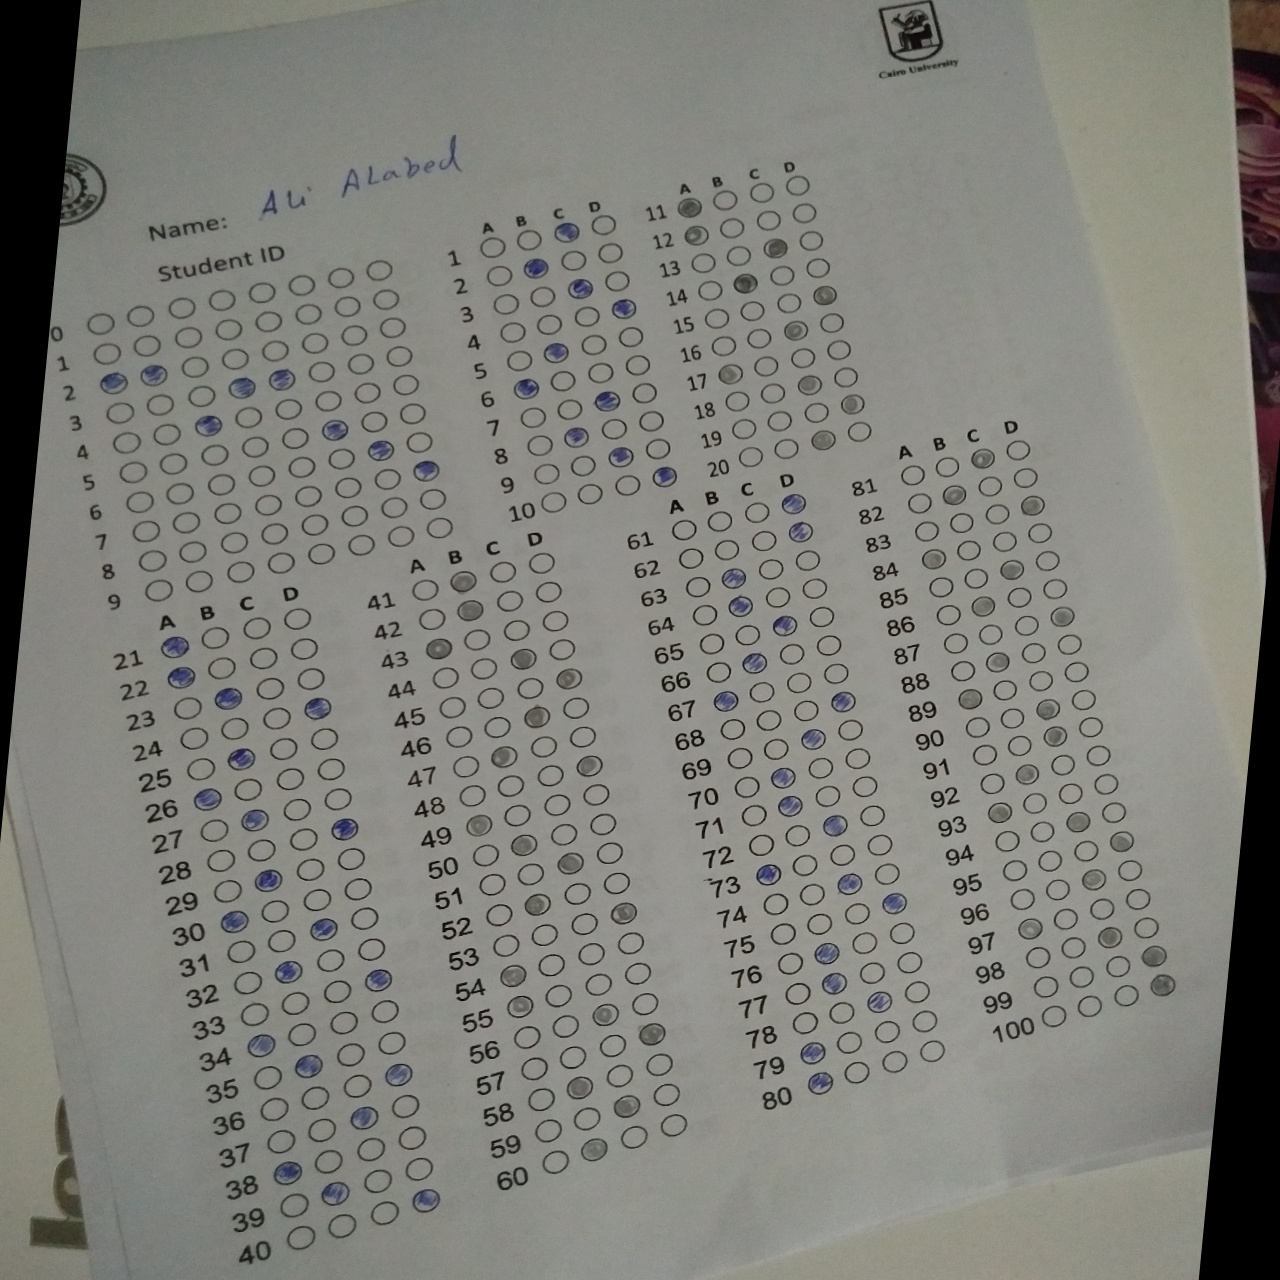 Cairo University
Name: Ali ALabed
Student ID
0
1
2
3
4
5
6
7
8
9
A B C D
1
2
3
4
5
6
7
8
9
10
A B C D
11
12
13
14
15
16
17
18
19
20
A B C D
21
22
23
24
25
26
27
28
29
30
31
32
33
34
35
36
37
38
39
40
A B C D
41
42
43
44
45
46
47
48
49
50
51
52
53
54
55
56
57
58
59
60
A B C D
61
62
63
64
65
66
67
68
69
70
71
72
73
74
75
76
77
78
79
80
A B C D
81
82
83
84
85
86
87
88
89
90
91
92
93
94
95
96
97
98
99
100